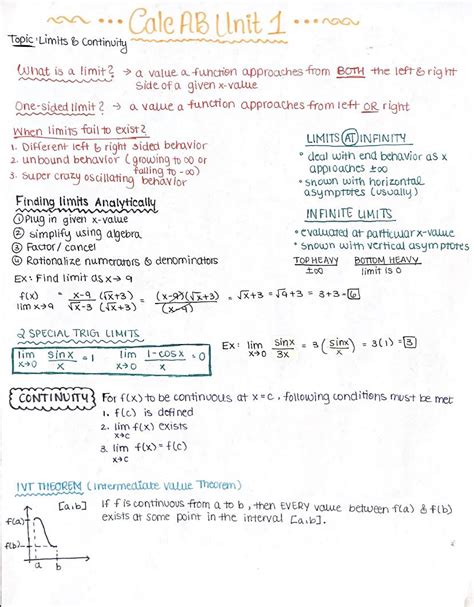 Calc AB Unit 1
Topic: Limits & Continuity
What is a limit? → a value a function approaches from BOTH the left & right
side of a given x-value
One-sided limit? → a value a function approaches from left OR right
When limits fail to exist?
1. Different left & right sided behavior
2. unbound behavior (growing to ∞ or
falling to -∞)
3. super crazy oscillating behavior
LIMITS AT INFINITY
• deal with end behavior as x
approaches ±∞
• shown with horizontal
asymptotes (usually)
Finding limits Analytically
① Plug in given x-value
② simplify using algebra
③ Factor/cancel
④ Rationalize numerators & denominators
INFINITE LIMITS
• evaluated at particular x-value
• shown with vertical asymptotes
TOP HEAVY BOTTOM HEAVY
±∞ limit is 0
Ex: Find limit as x → 9
f(x) = x-9 (√x+3) / √x-3 (√x+3) = (x-9)(√x+3) / (x-9) = √x+3 = √9+3 = 3+3 = 6
lim x→9
2 SPECIAL TRIG LIMITS
lim x→0 sinx/x = 1 lim x→0 1-cosx/x = 0
Ex: lim x→0 sinx/3x = 3 (sinx/x) = 3(1) = 3
CONTINUITY For f(x) to be continuous at x=c, following conditions must be met
1. f(c) is defined
2. lim f(x) exists
x→c
3. lim f(x) = f(c)
x→c
IVT THEOREM (Intermediate Value Theorem)
[a,b] If f is continuous from a to b, then EVERY value between f(a) & f(b)
exists at some point in the interval [a,b].
f(a)
f(b)
a b